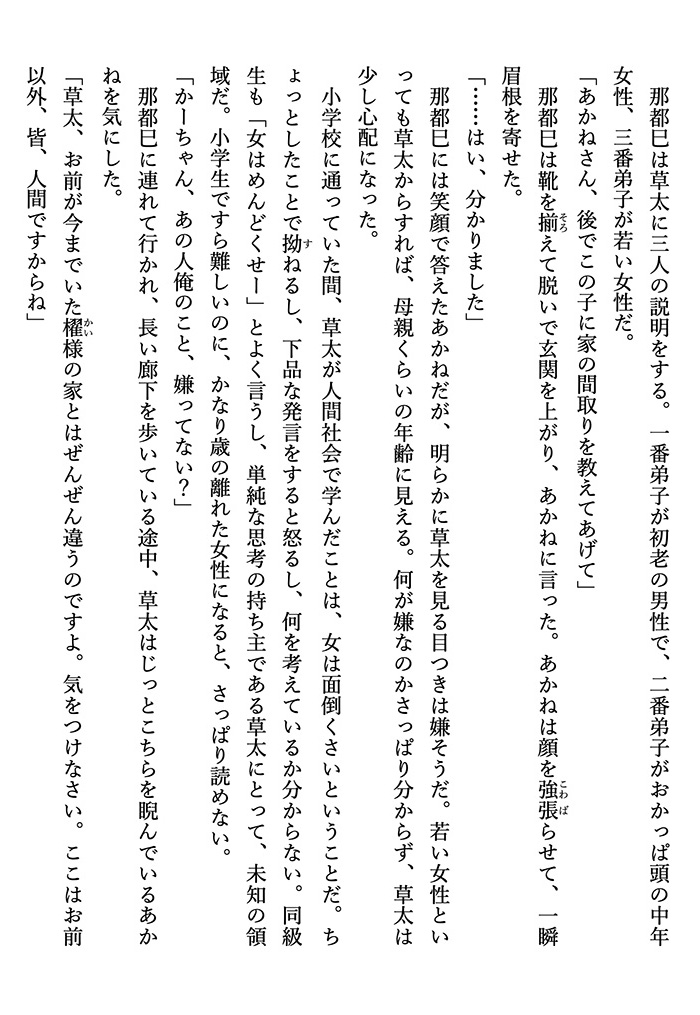 那都巳は草太に三人の説明をする。一番弟子が初老の男性で、二番弟子がおかっぱ頭の中年
女性、三番弟子が若い女性だ。
「あかねさん、後でこの子に家の間取りを教えてあげて」
　那都巳は靴を揃えて脱いで玄関を上がり、あかねに言った。あかねは顔を強張らせて、一瞬
眉根を寄せた。
「……はい、分かりました」
　那都巳には笑顔で答えたあかねだが、明らかに草太を見る目つきは嫌そうだ。若い女性とい
っても草太からすれば、母親くらいの年齢に見える。何が嫌なのかさっぱり分からず、草太は
少し心配になった。
　小学校に通っていた間、草太が人間社会で学んだことは、女は面倒くさいということだ。ち
ょっとしたことで拗ねるし、下品な発言をすると怒るし、何を考えているか分からない。同級
生も「女はめんどくせー」とよく言うし、単純な思考の持ち主である草太にとって、未知の領
域だ。小学生ですら難しいのに、かなり歳の離れた女性になると、さっぱり読めない。
「かーちゃん、あの人俺のこと、嫌ってない？」
　那都巳に連れて行かれ、長い廊下を歩いている途中、草太はじっとこちらを睨んでいるあか
ねを気にした。
「草太、お前が今までいた櫂様の家とはぜんぜん違うのですよ。気をつけなさい。ここはお前
以外、皆、人間ですからね」